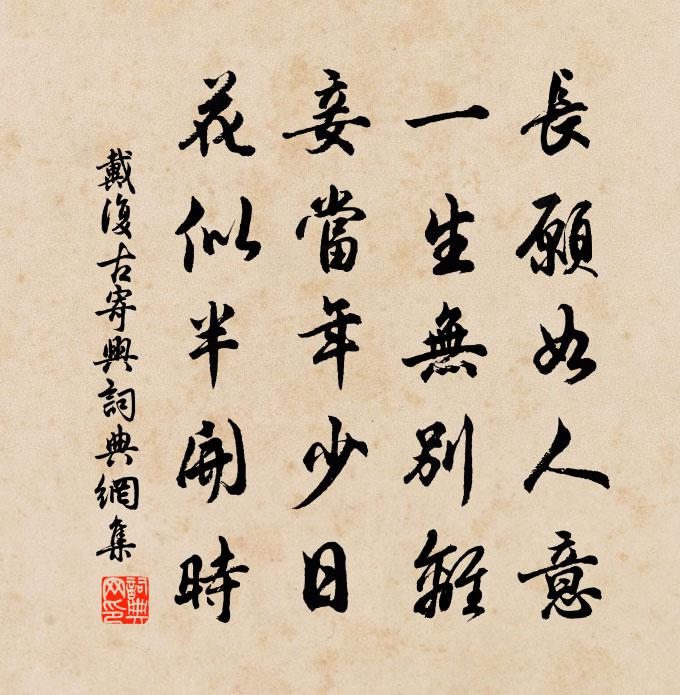 長願如人意
一生無別離
妾當年少日
花似半開時
戴復古寄興詞典網集
詞典網印